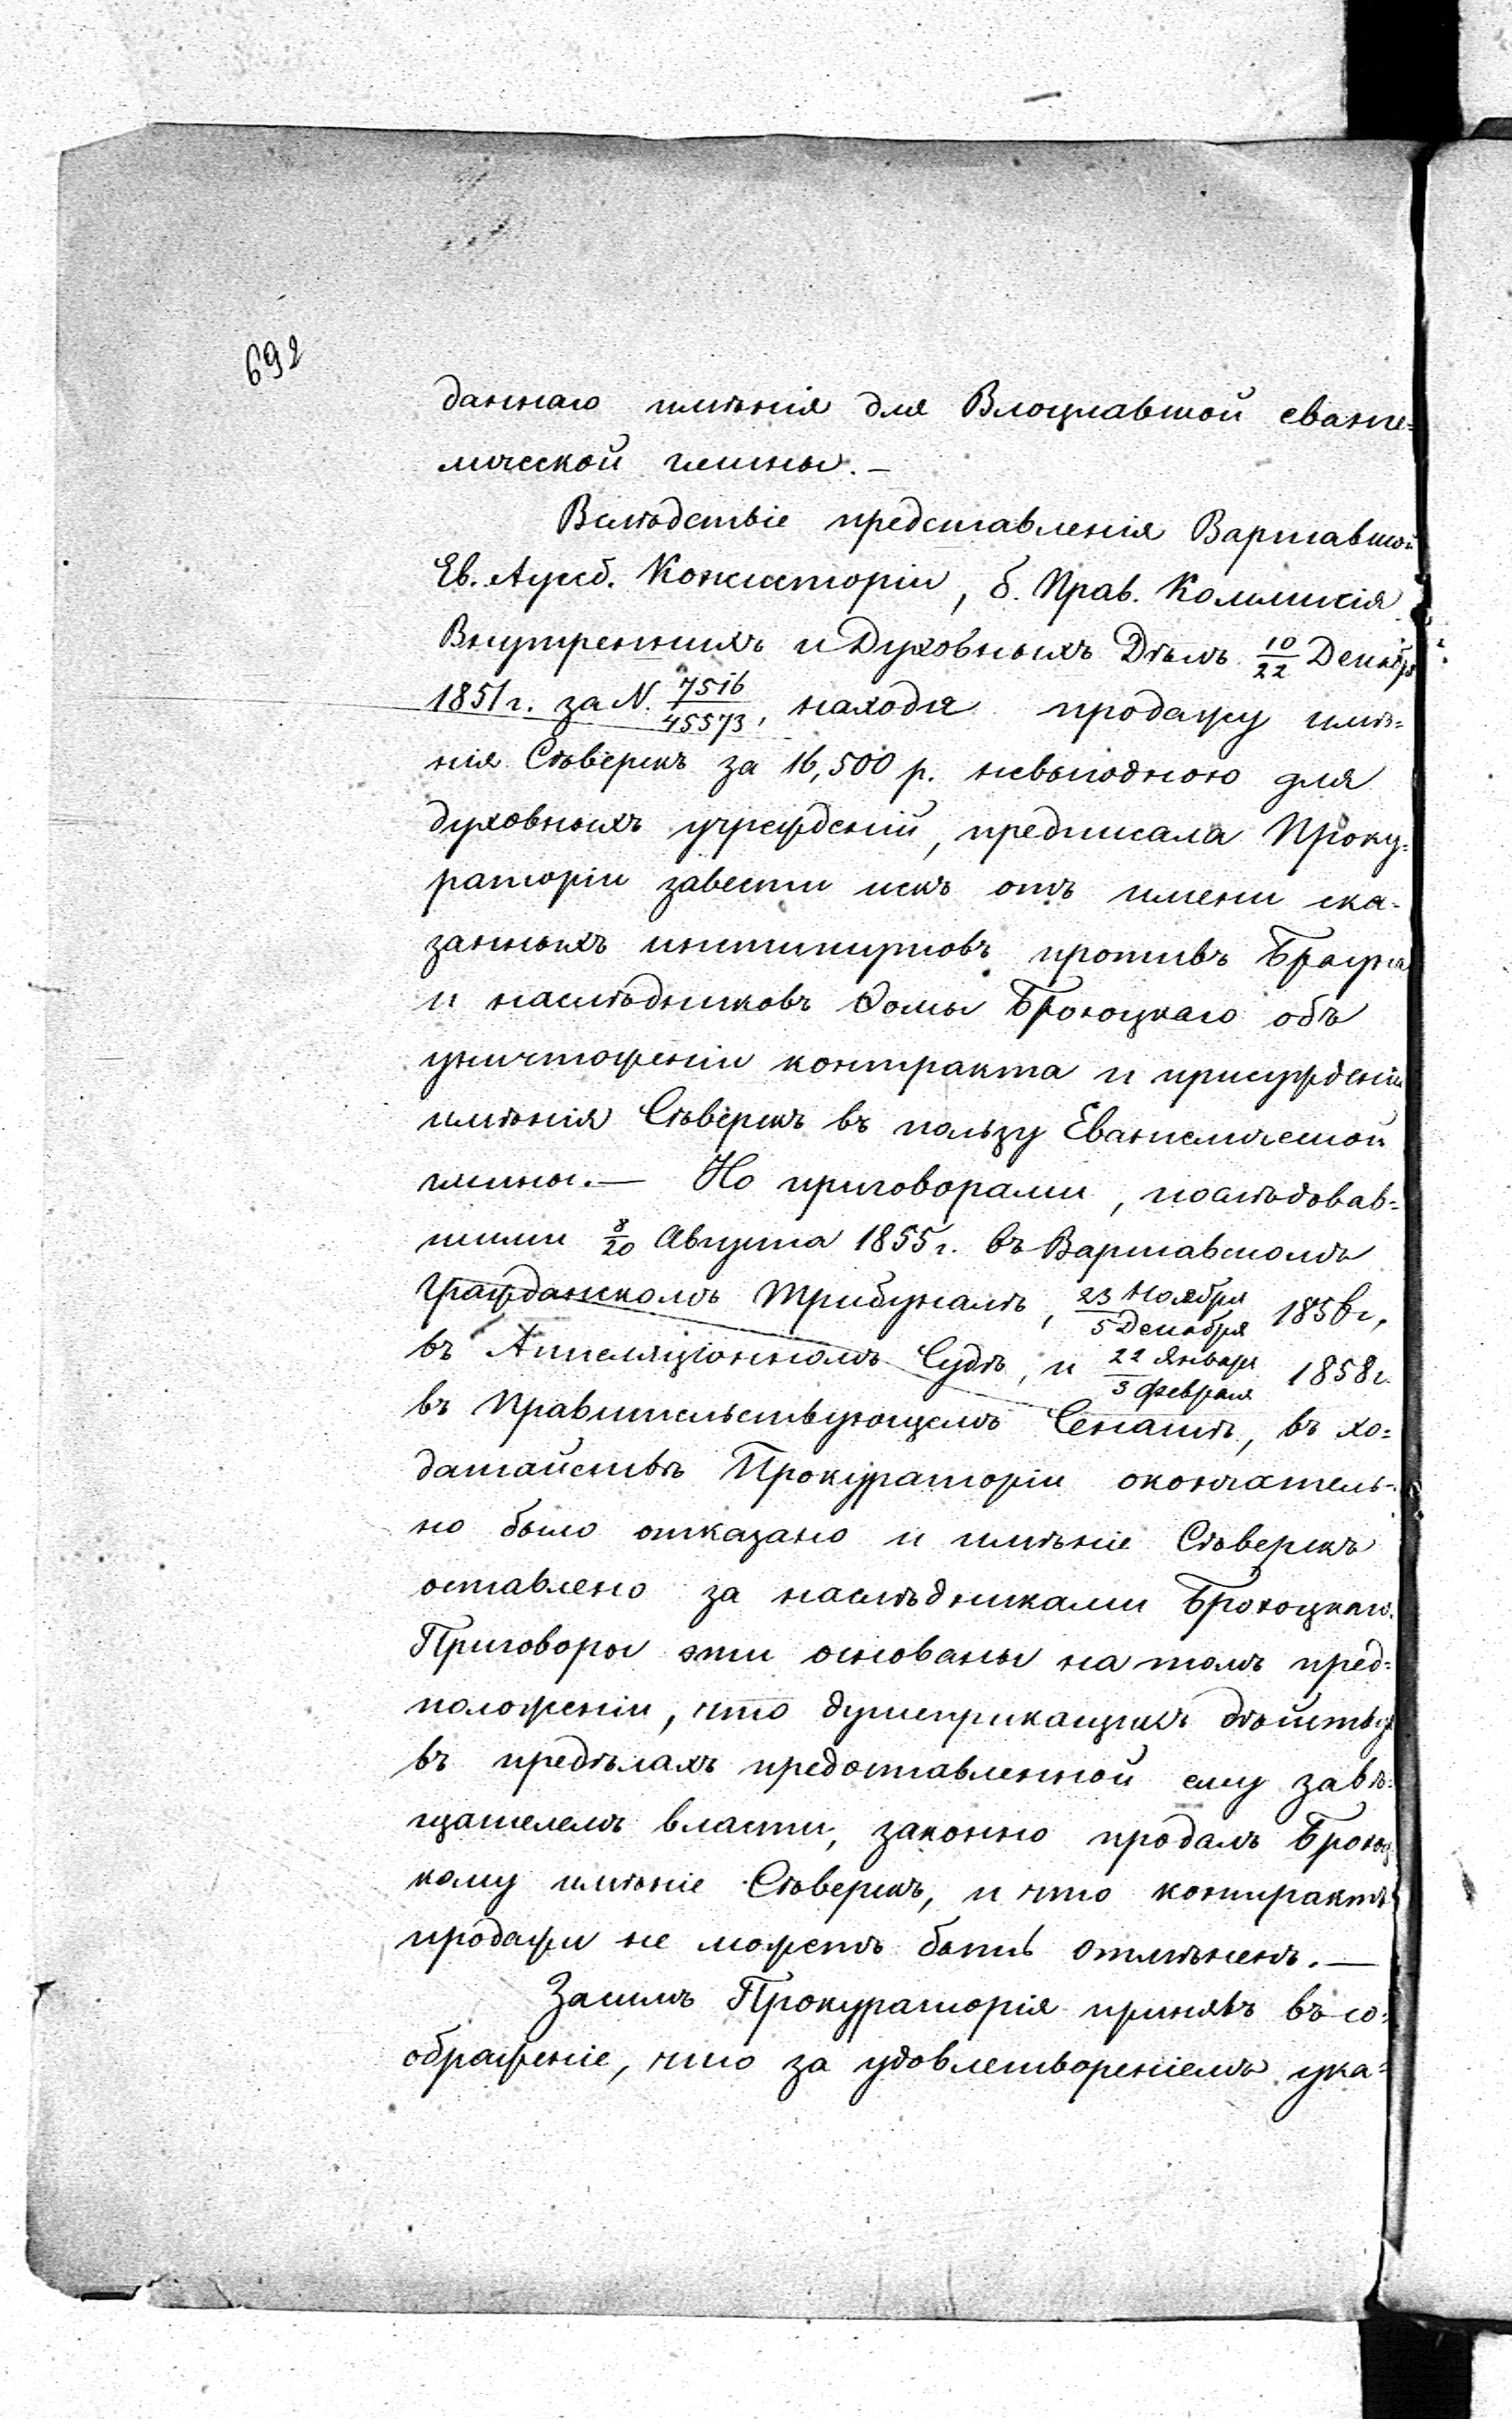 692
даннаго имѣнія для Влоцлавской еванге=
лической гмины. —
Вслѣдствіе представленія Варшавской
Ев. Аугсб. Консисторіи, б. Прав. Коммисія
Внутреннихъ и Духовныхъ Дѣлъ 10/22 Декабря
1851 г. за N. 7516/45573, находя продажу имѣ=
нія Сѣверскъ за 16,500 р. невыгодною для
духовныхъ учрежденій, предписала Проку=
раторіи завести искъ отъ имени ска=
занныхъ институтовъ противъ Брауна
и наслѣдниковъ Ѳомы Бронецкаго объ
уничтоженіи контракта и присужденіи
имѣнія Сѣверскъ въ пользу Евангелической
гмины. — Но приговорами, послѣдовав=
шими 8/20 Августа 1855 г. въ Варшавскомъ
Гражданскомъ Трибуналѣ, 23 Ноября/5 Декабря 1856 г.,
въ Аппеляціонномъ Судѣ, и 22 Января/3 Февраля 1858 г.
въ Правительствующемъ Сенатѣ, въ хо=
датайствѣ Прокураторіи окончатель=
но было отказано и имѣніе Сѣверскъ
оставлено за наслѣдниками
Приговоры эти основаны на томъ пред=
положеніи, что душеприкащикъ дѣйствуя
въ предѣлахъ предоставленной ему завѣ=
щателемъ власти, законно продалъ
кому имѣніе Сѣверскъ, и что контрактъ
продажи не можетъ быть отмѣненъ. —
Засимъ Прокураторія принявъ въ со=
ображеніе, что за удовлетвореніемъ ука=